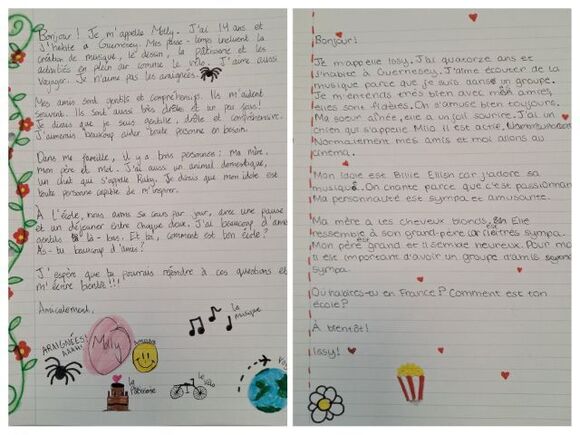 Bonjour! Je m'appelle Molly. J'ai 14 ans et
j'habite à Guernesey. Mes passe-temps incluent la
création de musique, le dessin, la pâtisserie et les
activités en plein air comme le vélo. J'aime aussi
voyager. Je n'aime pas les araignées.
Mes amis sont gentils et compréhensifs. Ils m'aident
souvent. Ils sont aussi très drôles et un peu fous!
Je dirais que je suis gentille, drôle et compréhensive.
J'aimerais beaucoup aider toute personne en besoin.
Dans ma famille, il y a trois personnes: ma mère,
mon père et moi. J'ai aussi un animal domestique,
un chat qui s'appelle Ruby. Je dirais que mon idole est
toute personne capable de m'inspirer.
À l'école, nous avons six cours par jour, avec une pause
et un déjeuner entre chaque deux. J'ai beaucoup d'amis
gentils là-bas. Et toi, comment est ton école?
As-tu beaucoup d'amis?
J'espère que tu pourrais répondre à ces questions et
m'écrire bientôt!!!
Amicalement,
Molly
ARAIGNÉES!
AAAH!
la
musique
la
Pâtisserie
le
vélo
Bonjour!
Je m'appelle Issy. J'ai quatorze ans et
j'habite à Guernesey. J'aime écouter de la
musique parce que je suis dans un groupe.
Je m'entends très bien avec mes amies,
elles sont fidèles. On s'amuse bien toujours.
Ma soeur aînée, elle a un joli sourire. J'ai un
chien qui s'appelle Milo il est actif.
Normalement mes amis et moi allons au
cinema.
Mon idole est Billie Eilish car j'adore sa
musique. On chante parce que c'est passionnant
Ma personnalité est sympa et amusante.
Ma mère a les cheveux blonds, Elle
ressemble à son grand-père car il est très sympa.
Mon père est grand et il semble heureux. Pour moi
il est important d'avoir un groupe d'amis
sympa.
Où habites-tu en France? Comment est ton
école?
À bientôt!
Issy!